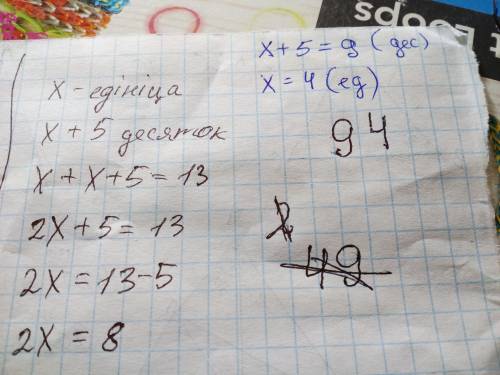 Loops
x - едініца
x + 5 десяток
x + x + 5 = 13
2x + 5 = 13
2x = 13 - 5
2x = 8
x + 5 = 9 (дес)
x = 4 (ед)
94
49